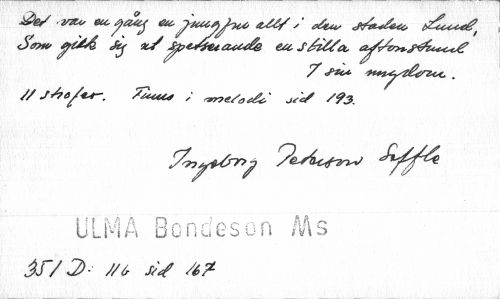 Det var en gång en jungfru allt i den staden Lund,
Som gick sig ut spatserande en stilla aftonstund
I sin ungdom.
11 strofer. Finns i melodi sid 193.
Ingeborg Peterson Säffle
ULMA Bondeson Ms
351 D: 11b sid 167